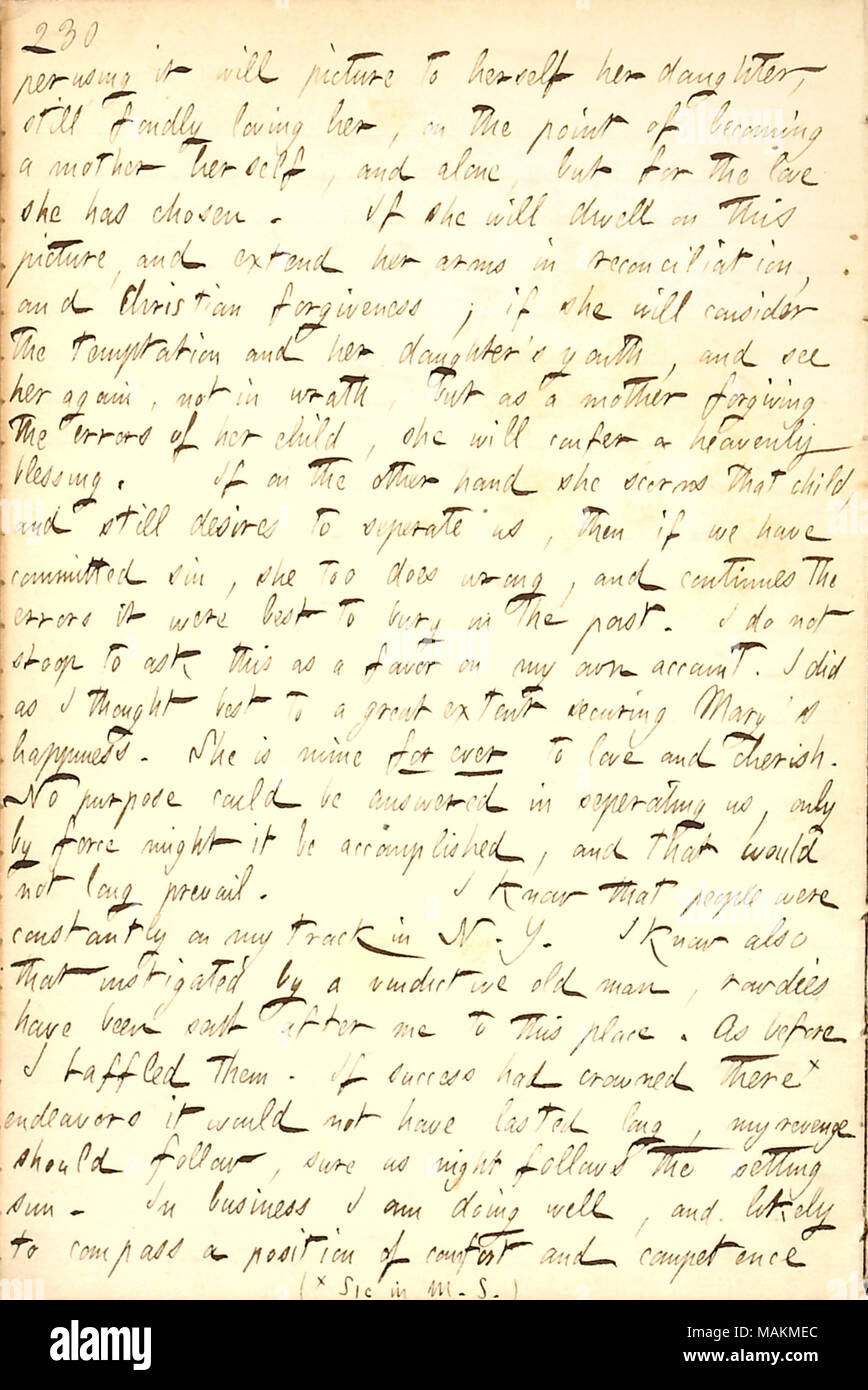 230
perusing it will picture to herself her daughter,
still fondly loving her, on the point of becoming
a mother herself, and alone, but for the love
she has chosen. If she will dwell on this
picture, and extend her arms in reconciliation,
and Christian forgiveness; if she will consider
the temptation and her daughter's youth, and see
her again, not in wrath, but as a mother forgiving
the errors of her child, she will confer a heavenly
blessing. If on the other hand she scorns that child,
and still desires to seperate us, then if we have
committed sin, she too does wrong, and continues the
errors it were best to bury in the past. I do not
stoop to ask this as a favor on my own account. I did
as I thought best to a great extent securing Mary's
happiness. She is mine for ever to love and cherish.
No purpose could be answered in seperating us, only
by force might it be accomplished, and that would
not long prevail. I know that people were
constantly on my track in N. Y. I know also
that instigated by a vindictive old man, rowdies
have been sent after me to this place. As before
I baffled them. If success had crowned there x
endeavors it would not have lasted long, my revenge
should follow, sure as night follows the setting
sun. In business I am doing well, and likely
to compass a position of comfort and competence
(x Sic in M.S.)
alamy
Image ID: MAKMEC
www.alamy.com